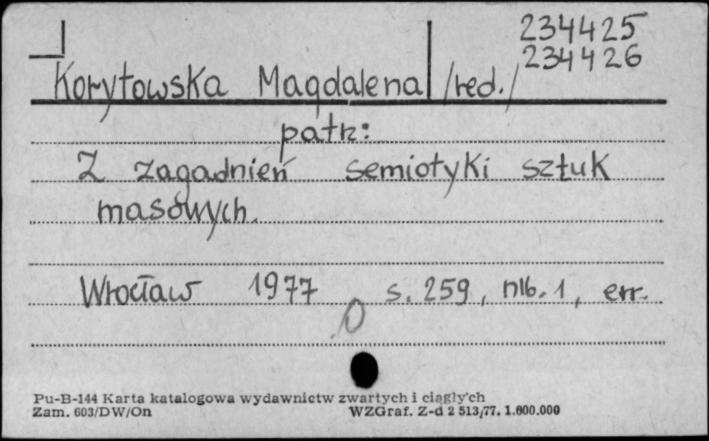 234425
234426
Korytowska Magdalena /red./
patrz:
Z zagadnień semiotyki sztuk
masowych.
Wrocław 1977 s. 259, nlb. 1, err.
Pu-B-144 Karta katalogowa wydawnictw zwartych i ciągłych
Zam. 603/DW/On WZGraf. Z-d 2 513/77. 1.600.000